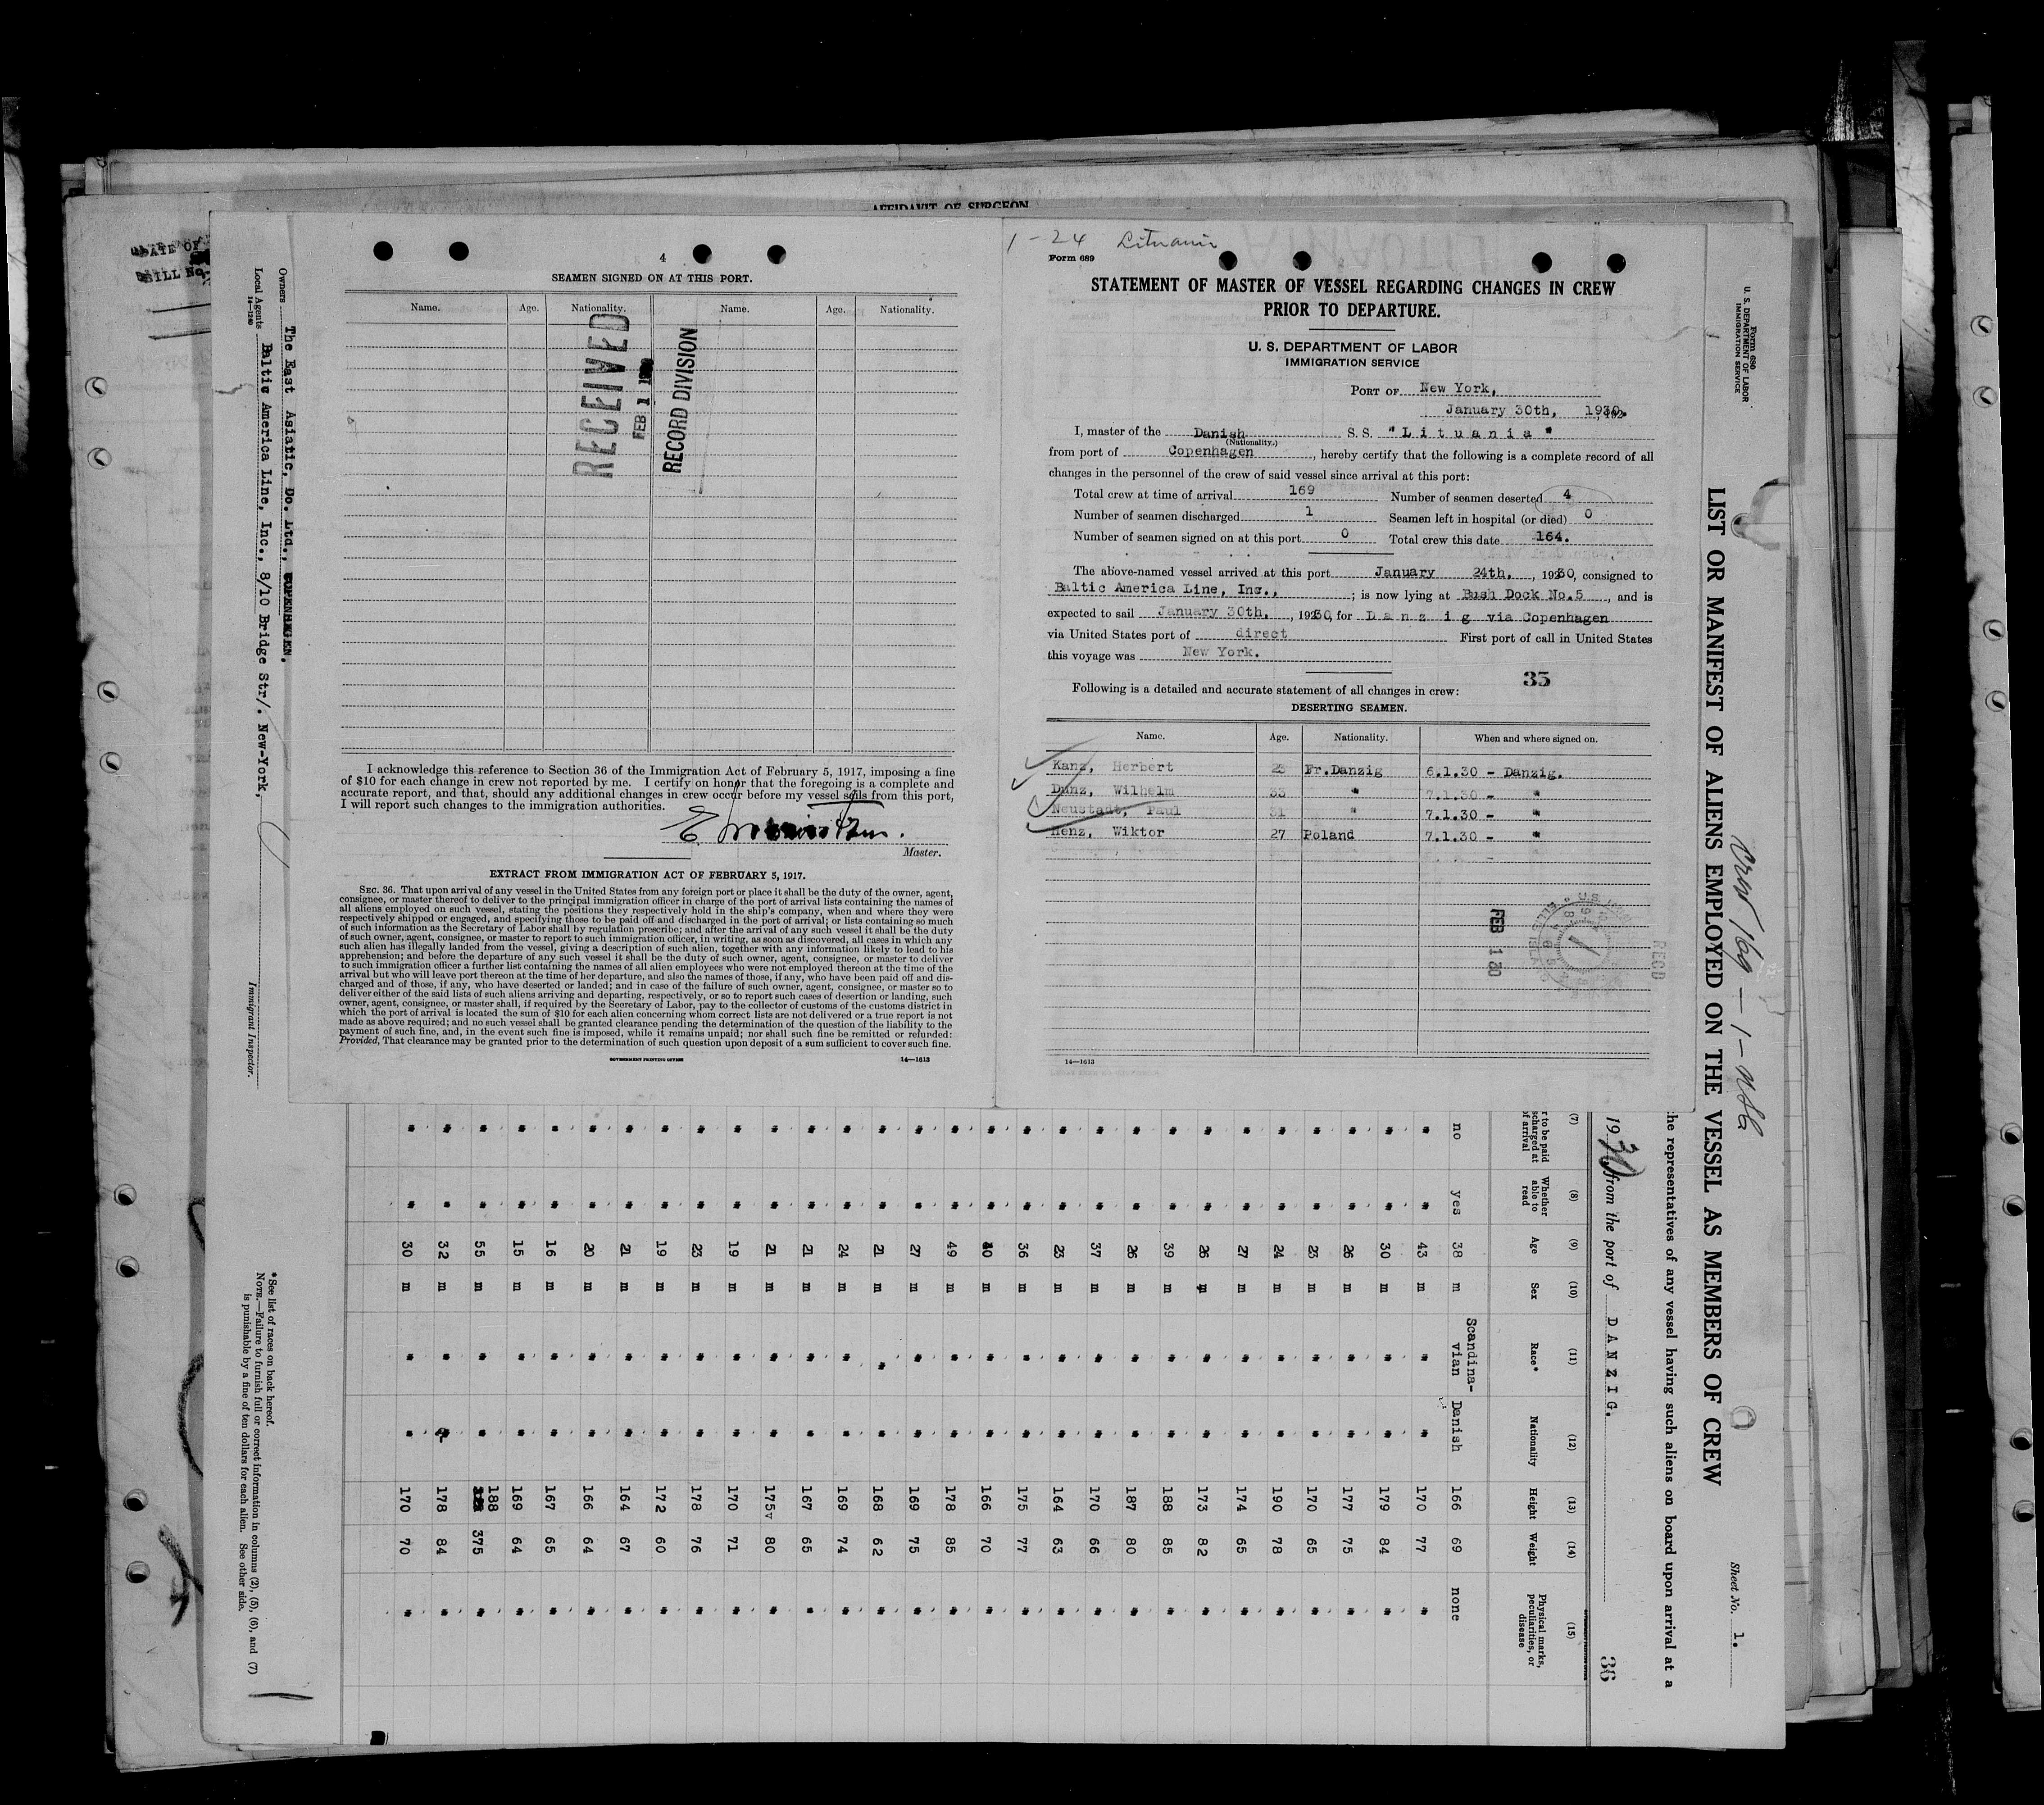 AFFIDAVIT OF SURGEON
DATE OF
BILL No.
4
SEAMEN SIGNED ON AT THIS PORT.
Name. Age. Nationality. Name. Age. Nationality.
RECEIVED
FEB 1
RECORD DIVISION
I acknowledge this reference to Section 36 of the Immigration Act of February 5, 1917, imposing a fine
of $10 for each change in crew not reported by me. I certify on honor that the foregoing is a complete and
accurate report, and that, should any additional changes in crew occur before my vessel sails from this port,
I will report such changes to the immigration authorities.
Master.
EXTRACT FROM IMMIGRATION ACT OF FEBRUARY 5, 1917.
SEC. 36. That upon arrival of any vessel in the United States from any foreign port or place it shall be the duty of the owner, agent,
consignee, or master thereof to deliver to the principal immigration officer in charge of the port of arrival lists containing the names of
all aliens employed on such vessel, stating the positions they respectively hold in the ship's company, when and where they were
respectively shipped or engaged, and specifying those to be paid off and discharged in the port of arrival; or lists containing so much
of such information as the Secretary of Labor shall by regulation prescribe; and after the arrival of any such vessel it shall be the duty
of such owner, agent, consignee, or master to report to such immigration officer, in writing, as soon as discovered, all cases in which any
such alien has illegally landed from the vessel, giving a description of such alien, together with any information likely to lead to his
apprehension; and before the departure of any such vessel it shall be the duty of such owner, agent, consignee, or master to deliver
to such immigration officer a further list containing the names of all alien employees who were not employed thereon at the time of the
arrival but who will leave port thereon at the time of her departure, and also the names of those, if any, who have been paid off and dis-
charged and of those, if any, who have deserted or landed; and in case of the failure of such owner, agent, consignee, or master so to
deliver either of the said lists of such aliens arriving and departing, respectively, or so to report such cases of desertion or landing, such
owner, agent, consignee, or master shall, if required by the Secretary of Labor, pay to the collector of customs of the customs district in
which the port of arrival is located the sum of $10 for each alien concerning whom correct lists are not delivered or a true report is not
made as above required; and no such vessel shall be granted clearance pending the determination of the question of the liability to the
payment of such fine, and, in the event such fine is imposed, while it remains unpaid; nor shall such fine be remitted or refunded:
Provided, That clearance may be granted prior to the determination of such question upon deposit of a sum sufficient to cover such fine.
GOVERNMENT PRINTING OFFICE
14—1613
1-24 Lituania
Form 689
STATEMENT OF MASTER OF VESSEL REGARDING CHANGES IN CREW
PRIOR TO DEPARTURE.
U. S. DEPARTMENT OF LABOR
IMMIGRATION SERVICE
PORT OF New York,
January 30th, 1930.
I, master of the Danish S. S. "Lituania"
(Nationality.)
from port of Copenhagen, hereby certify that the following is a complete record of all
changes in the personnel of the crew of said vessel since arrival at this port:
Total crew at time of arrival 169 Number of seamen deserted 4
Number of seamen discharged 1 Seamen left in hospital (or died) 0
Number of seamen signed on at this port 0 Total crew this date 164.
The above-named vessel arrived at this port January 24th, 1930, consigned to
Baltic America Line, Inc., ; is now lying at Bush Dock No.5, and is
expected to sail January 30th, 1930, for Danzig via Copenhagen
via United States port of direct First port of call in United States
this voyage was New York.
33
Following is a detailed and accurate statement of all changes in crew:
DESERTING SEAMEN.
Name. Age. Nationality. When and where signed on.
Kanz, Herbert 23 Fr.Danzig 6.1.30 - Danzig.
Danz, Wilhelm 33 " 7.1.30 - "
Neustadt, Paul 31 " 7.1.30 - "
Henz, Wiktor 27 Poland 7.1.30 - "
FEB 1 30
REC'D
14—1613
Form 680
U. S. DEPARTMENT OF LABOR
IMMIGRATION SERVICE
LIST OR MANIFEST OF ALIENS EMPLOYED ON THE VESSEL AS MEMBERS OF CREW
Sheet No. 1.
Crew 169 - 1 -
the representatives of any vessel having such aliens on board upon arrival at a
1930 from the port of DANZIG.
36
(7) (8) (9) (10) (11) (12) (13) (14) (15)
r to be paid
scharged at
of arrival
Whether able to read
Age
Sex
Race*
Nationality
Height
Weight
Physical marks, peculiarities, or disease
no yes 38 m Scandina-vian Danish 166 69 none
" " 43 m " " 170 77 "
" " 30 m " " 179 84 "
" " 26 m " " 177 75 "
" " 23 m " " 170 65 "
" " 24 m " " 190 78 "
" " 27 m " " 174 65 "
" " 26 m " " 173 82 "
" " 39 m " " 188 85 "
" " 26 m " " 187 80 "
" " 37 m " " 170 66 "
" " 23 m " " 164 63 "
" " 36 m " " 175 77 "
" " 40 m " " 166 70 "
" " 49 m " " 178 85 "
" " 27 m " " 169 75 "
" " 21 m " " 168 62 "
" " 24 m " " 169 74 "
" " 21 m " " 167 65 "
" " 21 m " " 175v 80 "
" " 19 m " " 170 71 "
" " 23 m " " 178 76 "
" " 19 m " " 172 60 "
" " 21 m " " 164 67 "
" " 20 m " " 166 64 "
" " 16 m " " 167 65 "
" " 15 m " " 169 64 "
" " 55 m " " 188 375 "
" " 32 m " " 178 84 "
" " 30 m " " 170 70 "
Owners The East Asiatic. Do. Ltd., COPENHAGEN.
Local Agents Baltic America Line, Inc., 8/10 Bridge Str/. New-York,
14—1240
Immigrant Inspector.
*See list of races on back hereof.
NOTE.—Failure to furnish full or correct information in columns (2), (5), (6), and (7)
is punishable by a fine of ten dollars for each alien. See other side.